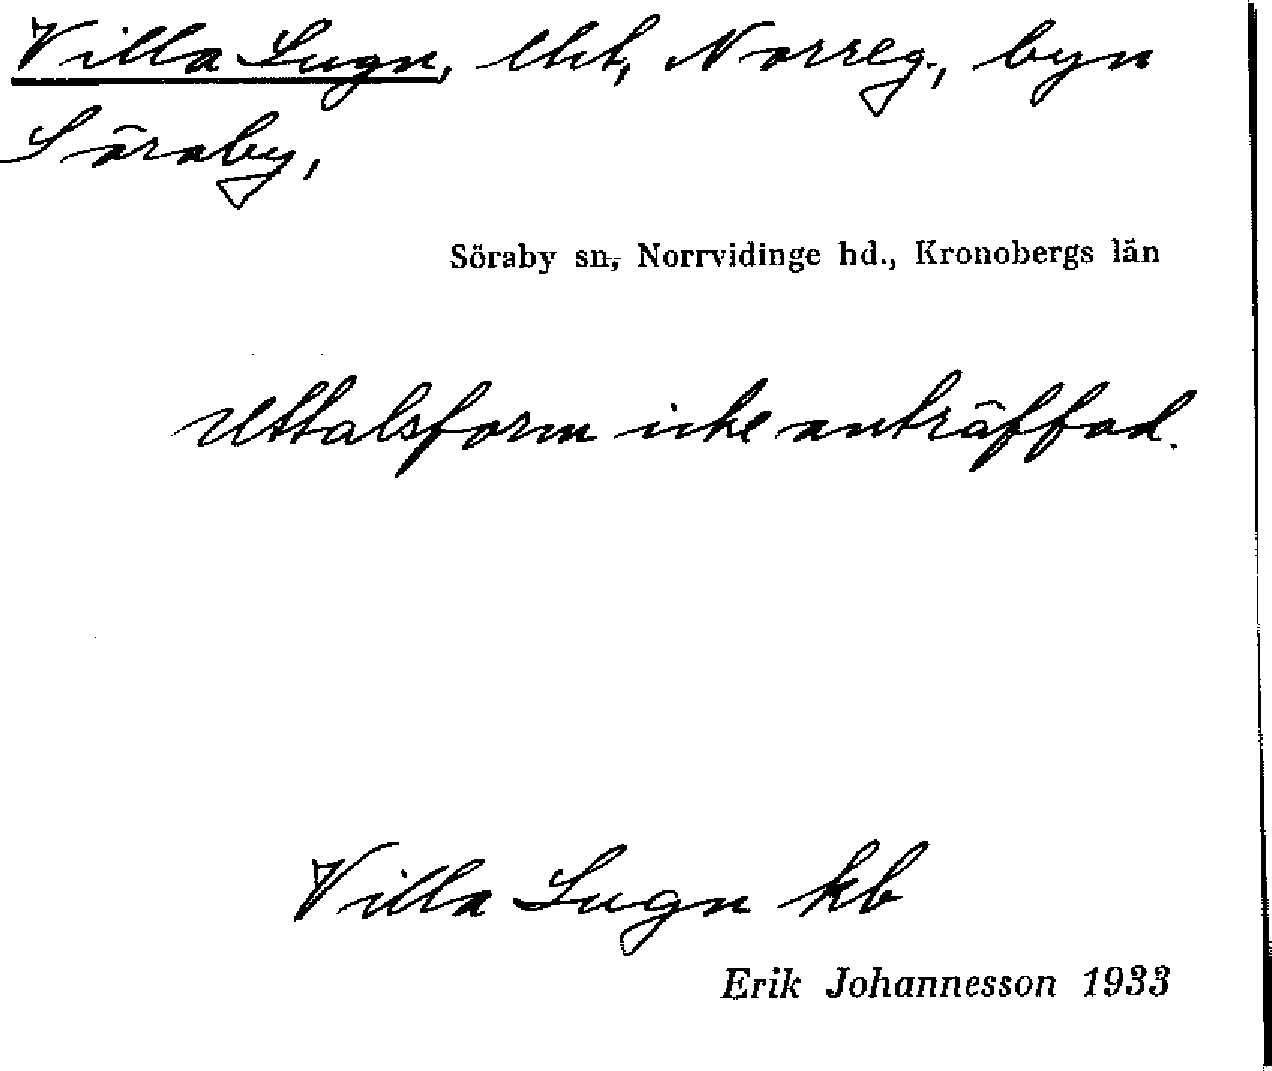 Villa Lugn, lht, Norreg., byn
Söraby,
Söraby sn, Norrvidinge hd., Kronobergs län
Uttalsform icke anträffad.
Villa Lugn kb
Erik Johannesson 1933